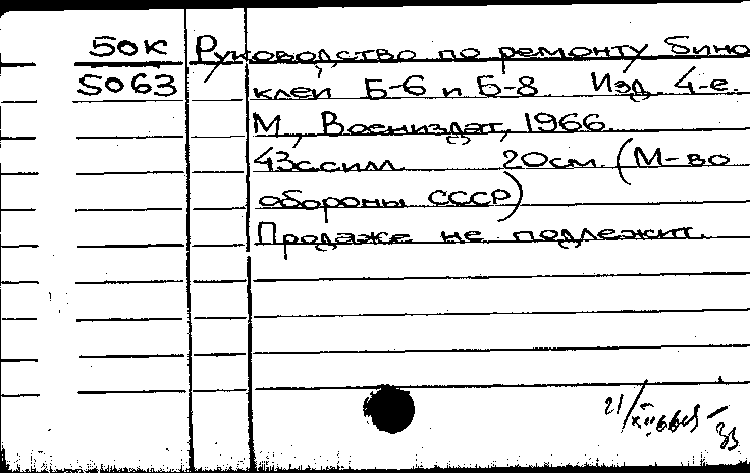 50К Руководство по ремонту бино
5063 клеи Б-6 и Б-8. Изд. 4-е.
М., Воениздат, 1966.
43с.силл. 20см. (М-во
обороны СССР)
Продаже не подлежит.
21/XII